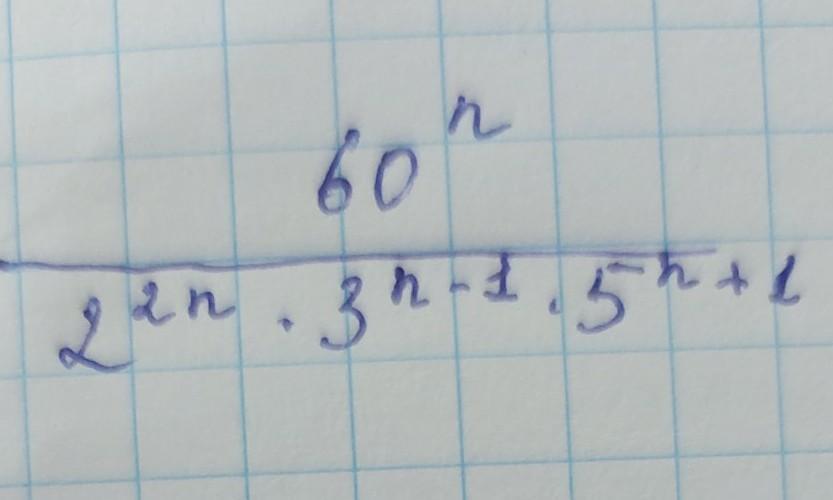 60^n
2^{2n} · 3^{n-1} · 5^{n+1}